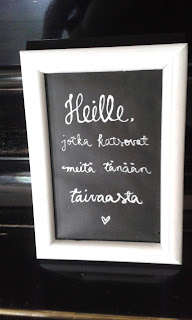 Heille,
jotka katsovat
meitä tänään
taivaasta